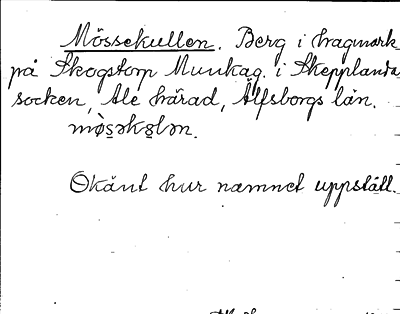 Mössekullen. Berg i hagmark
på Skogstorp Munkag. i Skepplanda
socken, Ale härad, Älfsborgs län.
mø̀sǝkɷlǝn.
Okänt hur namnet uppstått.